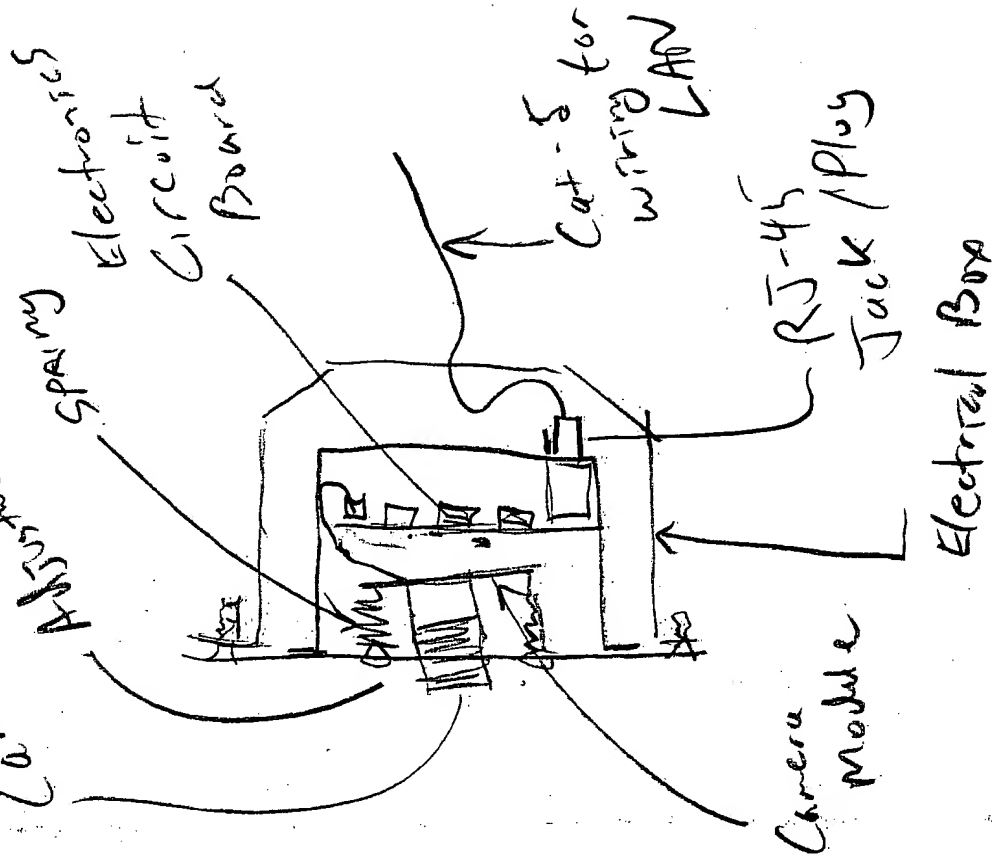 Spring
Electronics
Circuit
Board
Cat-5 for
wiring
LAN
RJ-45
Jack/Plug
Electrical Box
Camera
Module